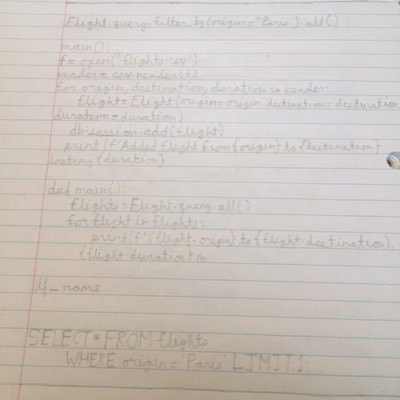 Flight.query.filter_by(origin="Paris").all()
main():
f = open("flights.csv")
reader = csv.reader(f)
for origin, destination, duration in reader:
flight = Flight(origin=origin, destination=destination
duration=duration)
db.session.add(flight)
print(f"Added flight from {origin} to {destination}
lasting {duration}
def main():
flights = Flight.query.all()
for flight in flights:
print(f"{flight.origin} to {flight.destination},
{flight.duration} m
if_name
SELECT * FROM flights
WHERE origin = 'Paris' LIMIT 1;